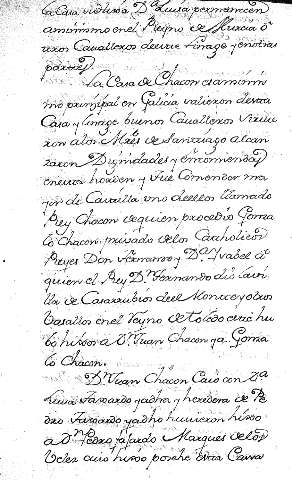 a Casa viene a D.ª Luisa permanecen
asimismo en el Reyno de Murcia o
tros Cavalleros de este linage y en otras
partes
La Casa de Chacon es asimis
mo principal en Galicia valieron de esta
Casa y linage buenos Cavalleros sirvie
ron a los M.res de Santiago alcan
zaron Dignidades y encomiendas
en esta horden y fue Comendor ma
yor de Castilla uno de ellos llamado
Rey Chacon de quien procedio Gonza
lo Chacon privado de los Catholicos
Reyes Don Fernando y D.ª Ysabel a
quien el Rey D.n Fernando dio la vi
lla de Casarubios del Monte y otros
Basallos en el reyno de toledo este hu
bo hixos a D.n Juan Chacon y a Gonza
lo Chacon.
D.n Juan Chacon Caso con D.ª
Luisa Faxardo y adha y heredera de Pe
dro Faxardo y adho huvieron hixo
a D.n Pedro fajardo Marques de los
Velez cuio hixo posehe esta Cassa